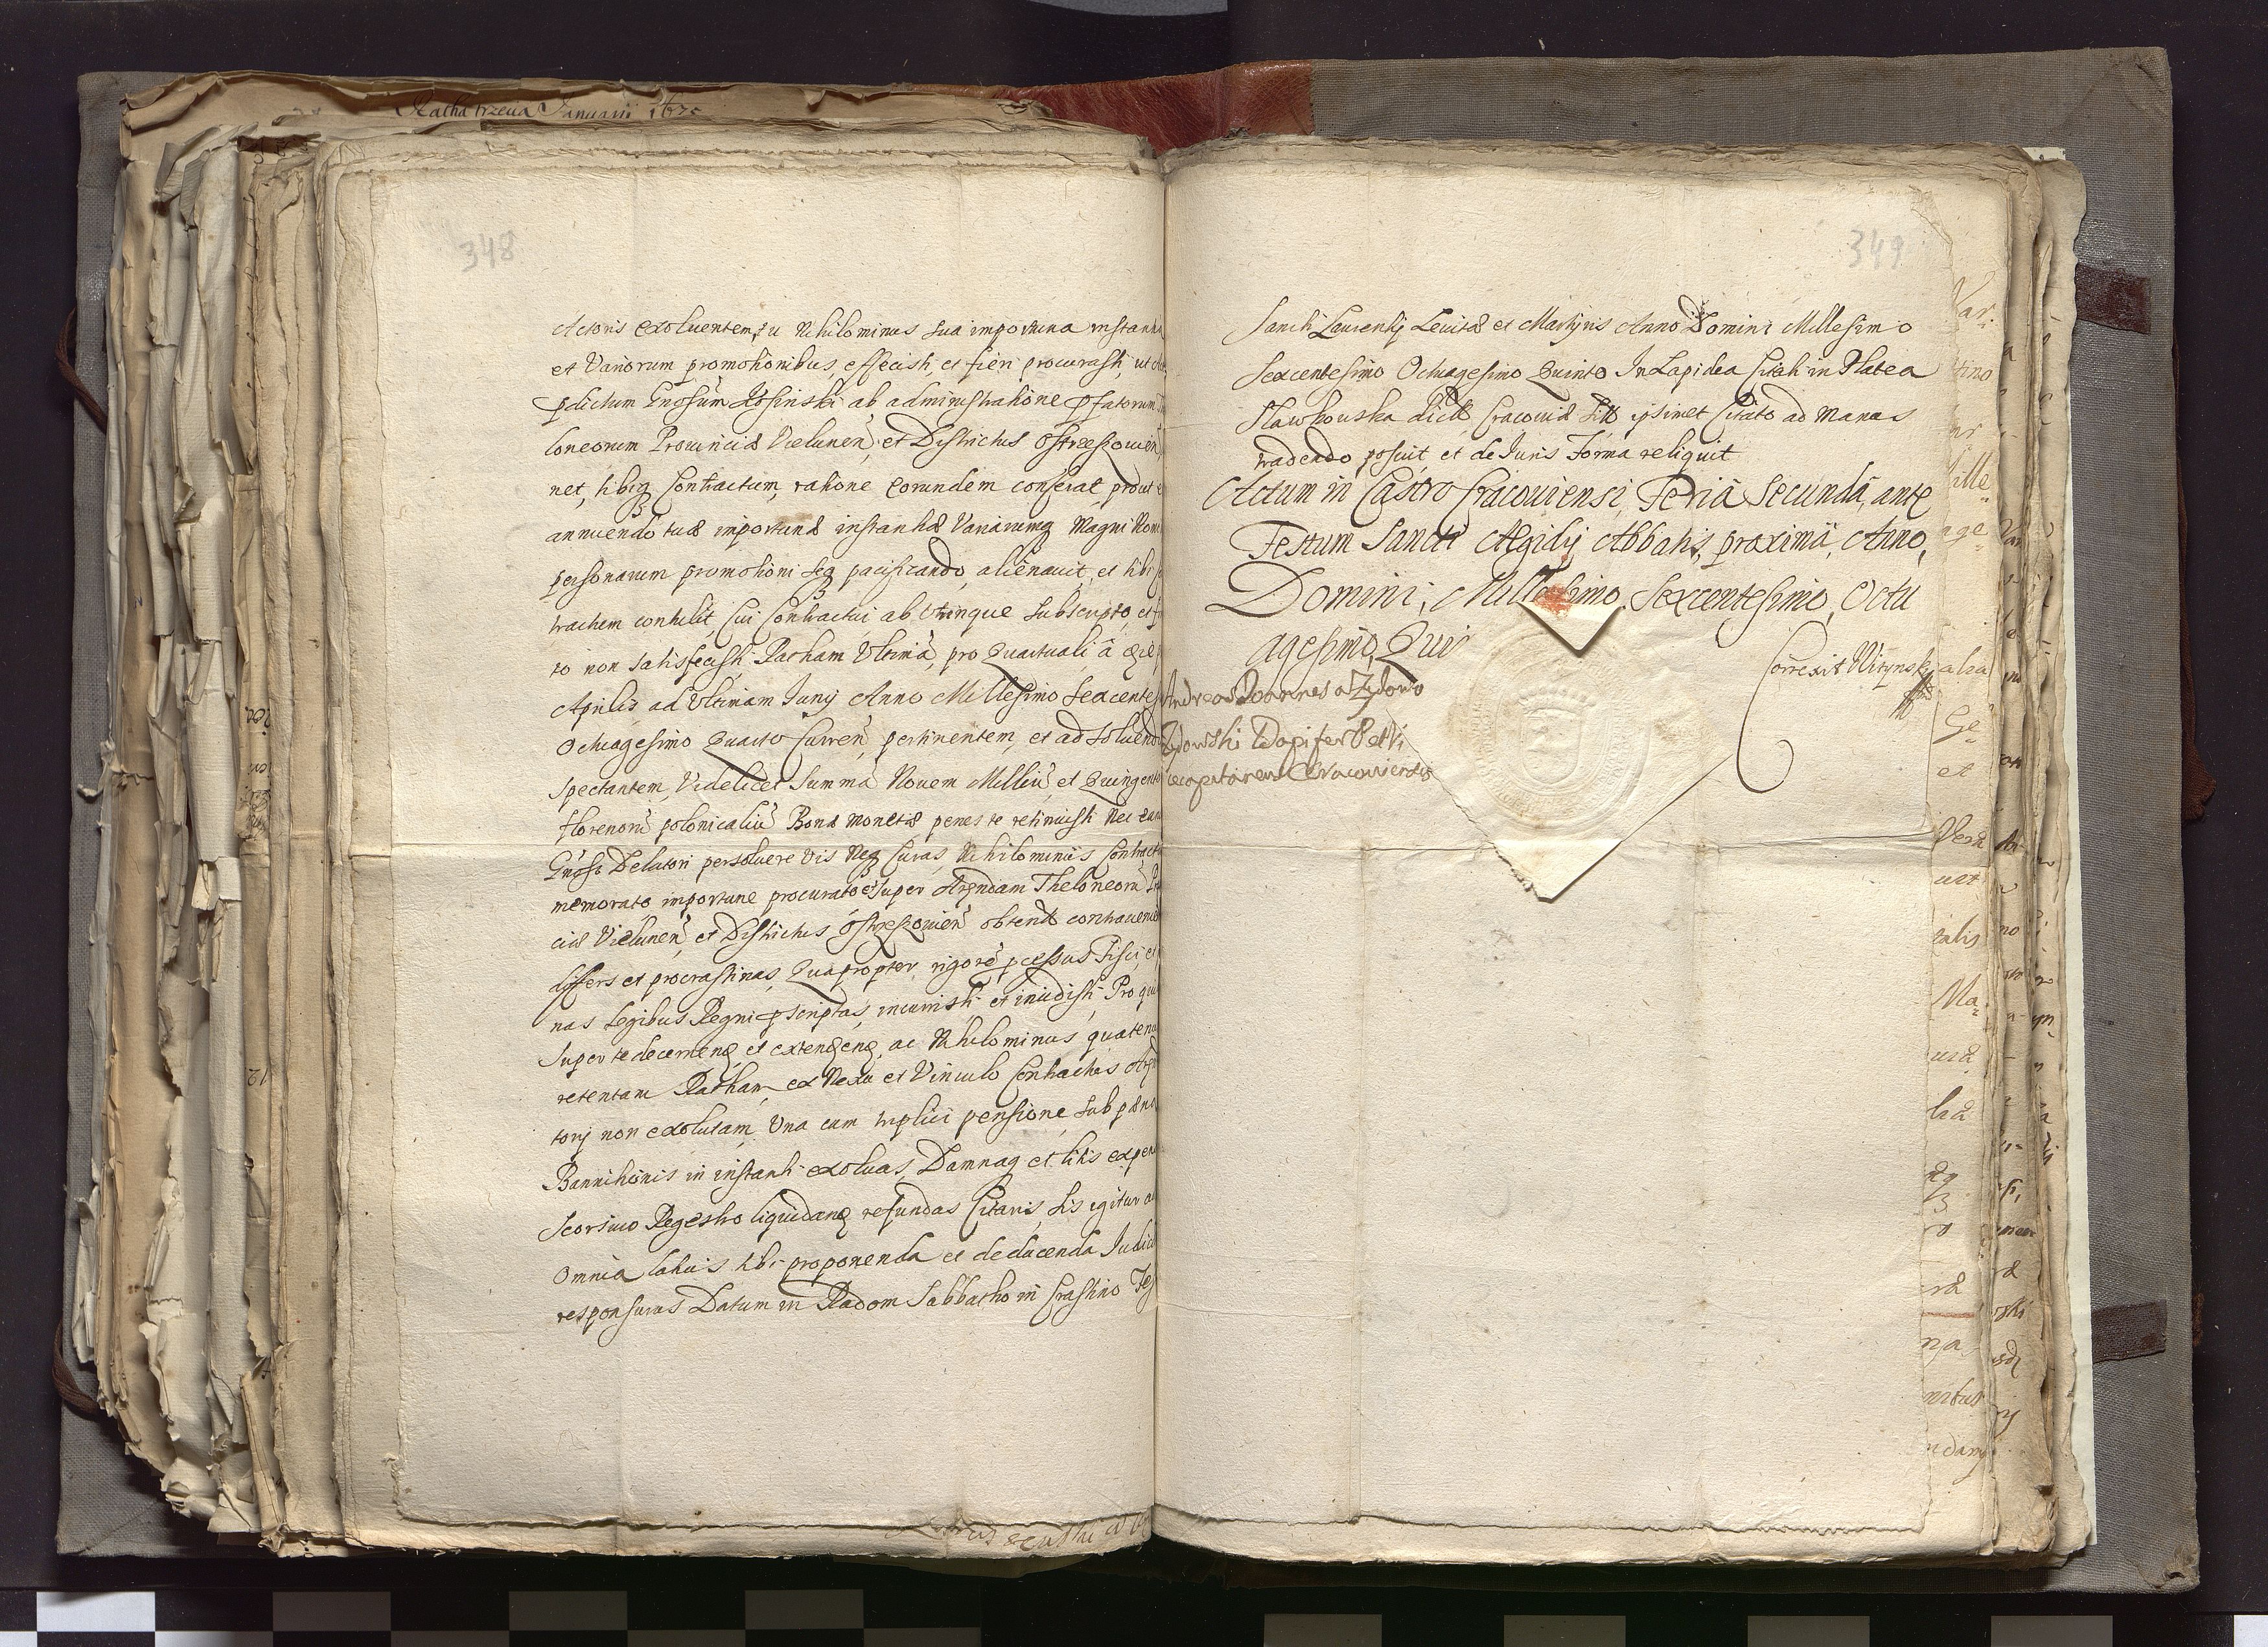 Ratha trzecia Januarii 1675
348
Actoris exoluentem, tu Nihilominus sua importuna instantia
et Variorum promotionibus, effecisti, et fieri procurasti, ut
pdictum Gnosum Rosinski ab administratione pfatorum
loneorum Prouinciæ Vielunen, et Districtus Ostrzeszouien,
net, tibiq Contractum, ratione eorundem conferat prout
annuendo tuæ importunæ instantiæ Variarumq Magni Nom
personarum promotioni seq pacificando, alienauit, et tibi
tractum contulit, Cui Contractui ab Utrinque subscripto, et
to non satisfecisti Ratham Ultimã, pro Quartuali â
Aprilis ad Ultimam Junij Anno Millesimo Sexcente
Octuagesimo Quarto Curren pertinentem, et ad soluend
spectantem, Videlicet Summã Nouem Milliũ et Quingent
florenorũ polonicaliũ Bonæ Monetæ penes te retinuisti Nec
Gnoso Delatori persoluere vis Neq Curas, Nihilominus Contractu
memorato importune procurato et super Arendam Theloneorũ
ciæ Vielunen, et Districtus Ostrzeszouien obtentæ contraueni
differs et procrastinas, Quapropter rigorẽ pcessus Fisci, et
nas Legibus Regni pscriptas, incurristi et inuidisti, Pro qui
super te decernenq et extendenq, ac Nihilominus quatenu
retentam Ratham, ex Nexu et Vinculo Contractus
torij non exolutam Una cum triplici pensione, sub pæna
Bannitionis in instanti exoluas, Damnaq et litis expen
Seorsiuo Regestro liquidanq refundas Citaris, Sis igitur
Omnia latius tibi proponenda et deducenda Judici
responsurus Datum in Radom Sabbatho in Crastino Fes
349
Sancti Laurentij Leuitæ et Martyris Anno Domini Millesimo
Sexcentesimo Octuagesimo Quinto In Lapidea Citati in Platea
Slawkouska dictæ Cracouiæ sitæ ipsimet Citato ad Manus
tradendo posuit et de Juris Forma reliquit
Actum in Castro Cracouiensi, Feriâ Secundâ, ante
Festum Sancti Ægidij Abbatis, proximâ, Anno,
Domini, Millesimo, Sexcentesimo, Octu
agesimo, Qui
Correxit Witynski
Andreas Joannes a Zydowo
Zydowski Dapifer
Cracouiensis